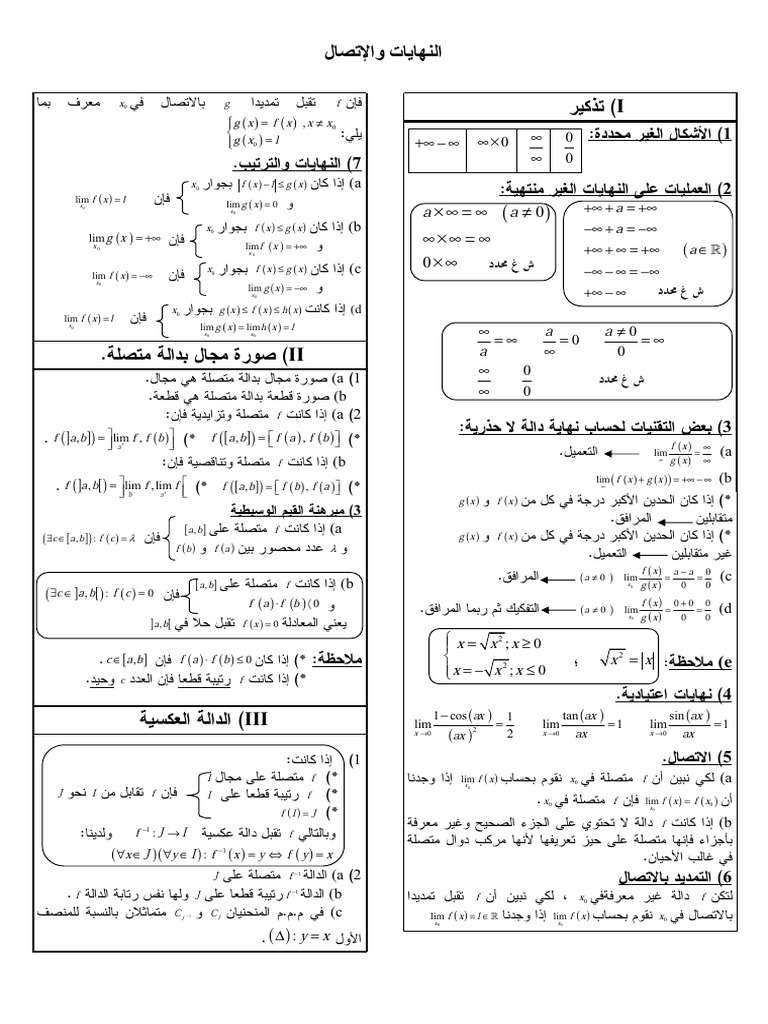 النهايات والإتصال
I) تذكير
1) الأشكال الغير محددة: 0/0 ∞/∞ ∞×0 +∞−∞
2) العمليات على النهايات الغير منتهية:
+∞+a=+∞
−∞+a=−∞
+∞+∞=+∞ (a∈ℝ)
−∞−∞=−∞
+∞−∞ ش غ محدد
a×∞=∞ (a≠0)
∞×∞=∞
0×∞ ش غ محدد
∞/a=∞ a/∞=0 a≠0/0=∞
∞/∞ 0/0 ش غ محدد
3) بعض التقنيات لحساب نهاية دالة لا حذرية:
a) lim f(x)/g(x)=∞/∞ ← التعميل.
b) lim(f(x)+g(x))=+∞−∞
*) إذا كان الحدين الأكبر درجة في كل من f(x) و g(x)
متقابلين ← المرافق.
*) إذا كان الحدين الأكبر درجة في كل من f(x) و g(x)
غير متقابلين ← التعميل.
c) lim x₀ f(x)/g(x)=a−a/0=0/0 (a≠0) ← المرافق.
d) lim x₀ f(x)/g(x)=0+0/0=0/0 (a≠0) ← التفكيك ثم ربما المرافق.
e) ملاحظة: √x²=|x| ؛ { x=√x² ; x≥0
x=−√x² ; x≤0
4) نهايات اعتيادية.
lim x→0 sin(ax)/ax=1 lim x→0 tan(ax)/ax=1 lim x→0 1−cos(ax)/(ax)²=1/2
5) الاتصال.
a) لكي نبين أن f متصلة في x₀ نقوم بحساب lim x₀ f(x) إذا وجدنا
أن lim x₀ f(x)=f(x₀) فإن f متصلة في x₀.
b) إذا كانت f دالة لا تحتوي على الجزء الصحيح وغير معرفة
بأجزاء فإنها متصلة على حيز تعريفها لأنها مركب دوال متصلة
في غالب الأحيان.
6) التمديد بالاتصال
لتكن f دالة غير معرفةفي x₀ ، لكي نبين أن f تقبل تمديدا
بالاتصال في x₀ نقوم بحساب lim x₀ f(x) إذا وجدنا lim x₀ f(x)=l∈ℝ
فإن f تقبل تمديدا g بالاتصال في x₀ معرف بما
يلي: { g(x)=f(x) ,x≠x₀
g(x₀)=l
7) النهايات والترتيب.
a) إذا كان |f(x)−l≤g(x) بجوار x₀
و lim x₀ g(x)=0 فإن lim x₀ f(x)=l
b) إذا كان f(x)≤g(x) بجوار x₀
و lim f(x)=+∞ فإن lim x₀ g(x)=+∞
c) إذا كان f(x)≤g(x) بجوار x₀
و lim x₀ g(x)=−∞ فإن lim x₀ f(x)=−∞
d) إذا كانت g(x)≤f(x)≤h(x) بجوار x₀
lim x₀ g(x)=lim x₀ h(x)=l فإن lim x₀ f(x)=l
II) صورة مجال بدالة متصلة.
1) a) صورة مجال بدالة متصلة هي مجال.
b) صورة قطعة بدالة متصلة هي قطعة.
2) a) إذا كانت f متصلة وتزايدية فإن:
*) f([a,b])=[f(a),f(b)] *) f(]a,b])=]lim a⁺ f,f(b)] .
b) إذا كانت f متصلة وتناقصية فإن:
*) f([a,b])=[f(b),f(a)] *) f(]a,b[)=]lim b⁻ f,lim a⁺ f[ .
3) مبرهنة القيم الوسيطية
a) إذا كانت f متصلة على [a,b]
و λ عدد محصور بين f(a) و f(b) فإن (∃c∈[a,b]):f(c)=λ
b) إذا كانت f متصلة على [a,b]
و f(a)·f(b)⟨0 فإن (∃c∈]a,b[):f(c)=0
يعني المعادلة f(x)=0 تقبل حلا في ]a,b[
ملاحظة: *) إذا كان f(a)·f(b)≤0 فإن c∈[a,b] .
*) إذا كانت f رتيبة قطعا فإن العدد c وحيد.
III) الدالة العكسية
1) إذا كانت:
*) f متصلة على مجال I
*) f رتيبة قطعا على I فإن f تقابل من I نحو J
*) f(I)=J
وبالتالي f تقبل دالة عكسية f⁻¹:J→I ولدينا:
(∀x∈J)(∀y∈I):f⁻¹(x)=y⇔f(y)=x
2) a) الدالة f⁻¹ متصلة على J
b) الدالة f⁻¹ رتيبة قطعا على J ولها نفس رتابة الدالة f .
c) في م.م.م المنحنيان C_f و C_f⁻¹ متماثلان بالنسبة للمنصف
الأول (Δ):y=x .